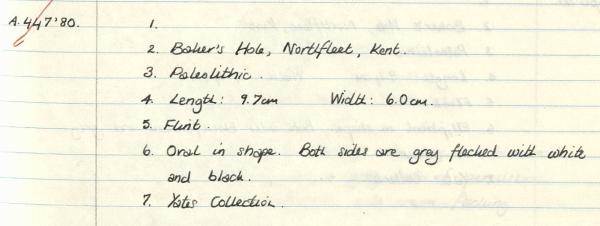 A.447'80. 1.
2. Baker's Hole, Northfleet, Kent.
3. Paleolithic.
4. Length: 9.7cm Width: 6.0cm.
5. Flint.
6. Oval in shape. Both sides are grey flecked with white
and black.
7. Yates Collection.